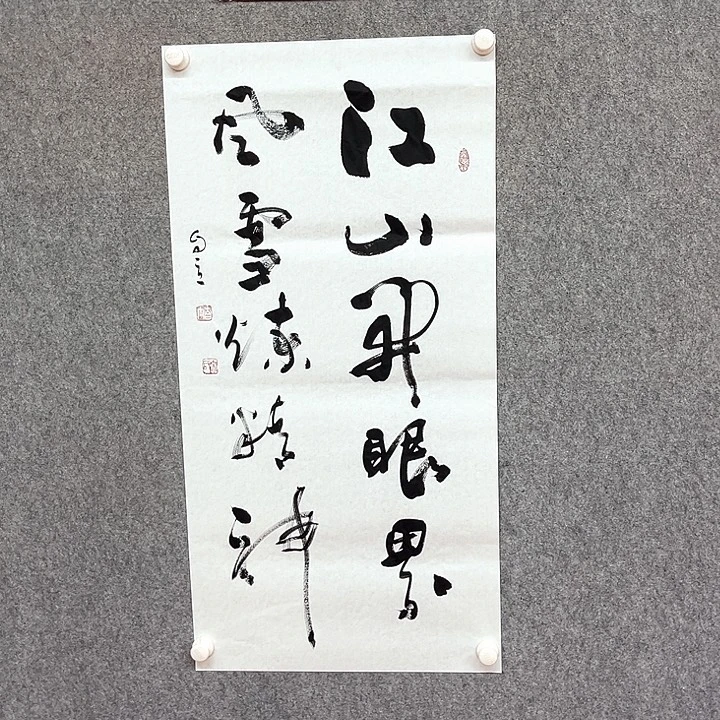 江山开眼界
风雪炼精神